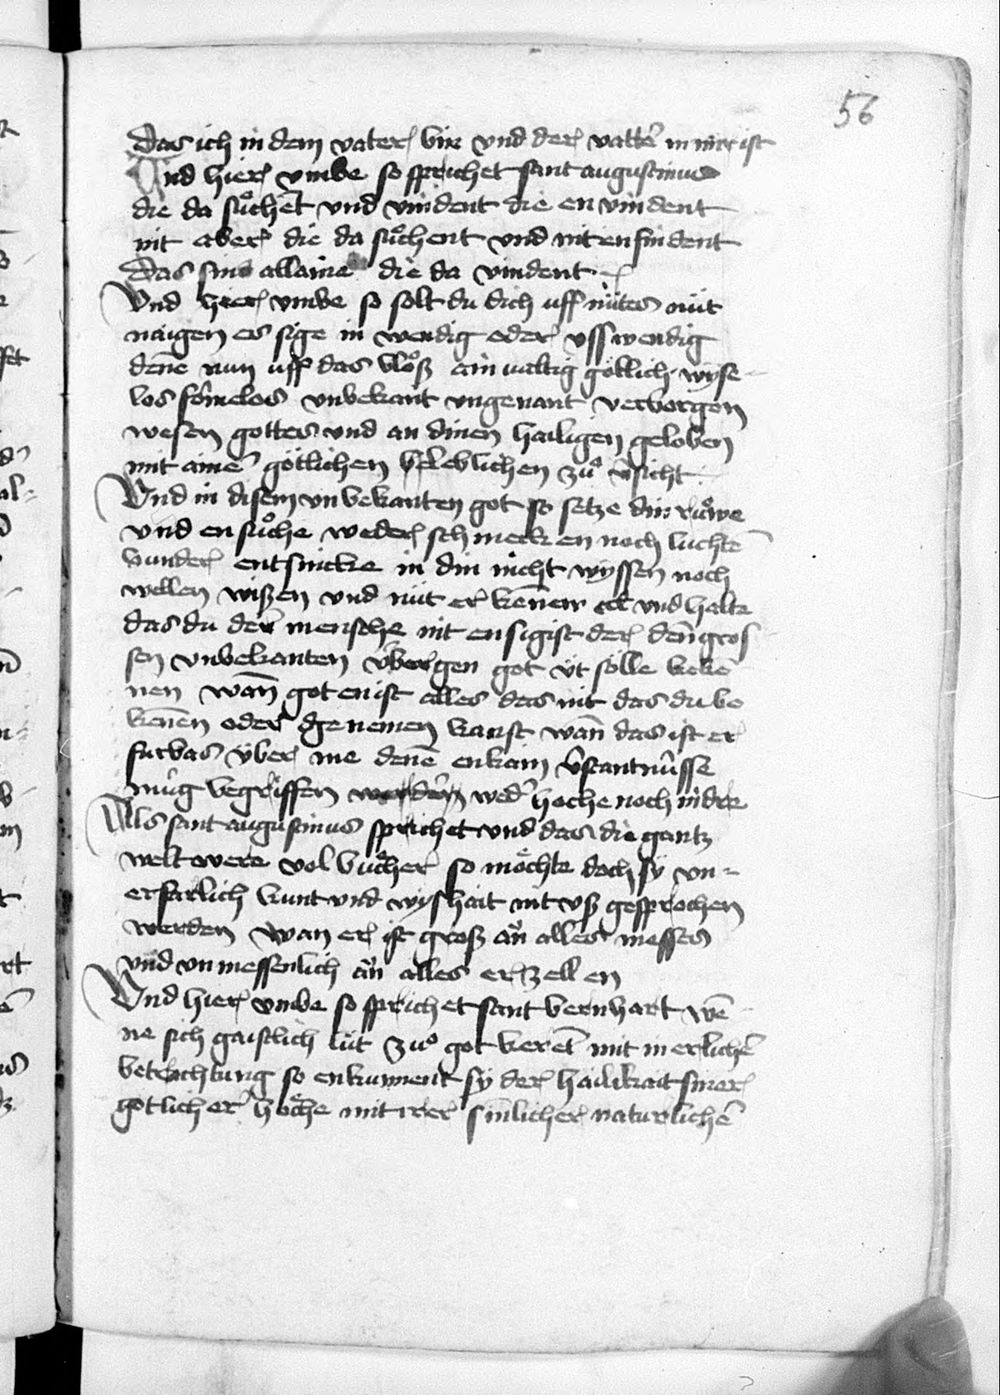 56
Das ich in dem vater bin vnd der vatter̄ in mir ist
Vnd hier vmbe so sprichet sant augustinus
die da sůchent vnd vindent die en vindent
nit aber die da sůchent vnd nit enfindent
Das sind allaine die da vindent
Vnd hier vmbe so solt du dich vff nütes nüt
naigen es sige in wendig oder vsswendig
deñe nun vff das blos ainualtig götlich wyse-
los formelos vnbekant vngenant verborgen
wesen gottes vnd an dinen hailigen geloben
mit aineꝫ götlichen beleblichen zův̄sicht
Vnd in disem vnbekanten got so setze din růwe
vnd en sůche weder schmecken noch luchtē
sunder entsincke in din nicht wyssen noch
wellen wissen vnd nüt er kennen vnd halte
das du der mensche nit ensigist der den gros
sen vnbekanten v̄borgen got üt sölle beke
nen wan̄ got enist alles das nit das du be
keñen oder genemen kanst wan̄ das ist er
furbas über me deñe enkain v̄stantnüsse
müg begriffen wed̄ hoche noch nider
Als sant augustinus sprichet vnd das die gantz
welt were vol bůcher so möchte doch sy vn-
erfarlich kunt vnd wyshait nit vss gesprochen
werden wan er ist gross ān alles messes
vnd vnmessenlich ān alles erzellen
Vnd hier vmbe so sprichet sant bernhart wē
ne sich gaistlich lüt zů got kerēt mit inerlichē
betrachtung so enkument sy der hailikait siner
götlicher höche mit irer sinlicher naturlichē